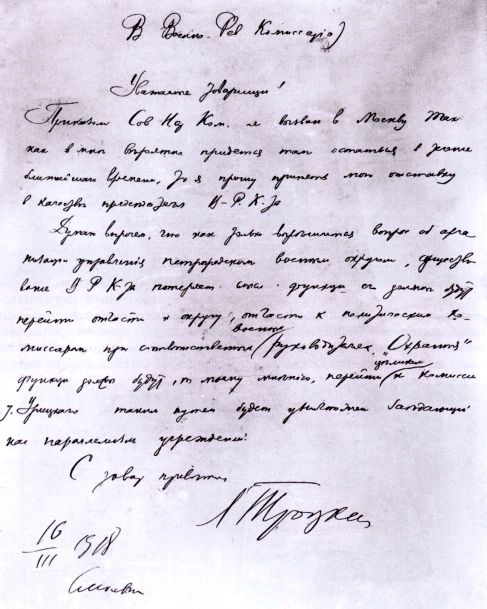 В Военно-Рев Комиссариат
Уважаемые товарищи!
Приказом Сов Нар Ком. я вызван в Москву. Так
как я мне вероятно придется там остаться в течение
ближайшаго времени, то я прошу принять мою отставку
в качестве председателя В-Р.К-та
Думаю впрочем, что как только вопрос об орга
низации управления петроградским военным округом, существо
вание В Р К-та потеряет смысл. функции его должны будут
перейти отчасти к округу, отчасти к политическим ко-
военным
миссарам при соответственных руководителях, "Охранныя"
целиком
функции должны будут, по моему мнению, перейти к комиссии
т. Урицкаго таким путем будет уничтожен
нас параллелизм учреждений.
С товар приветом
Л Троцкий
16
III 1918
Смольный